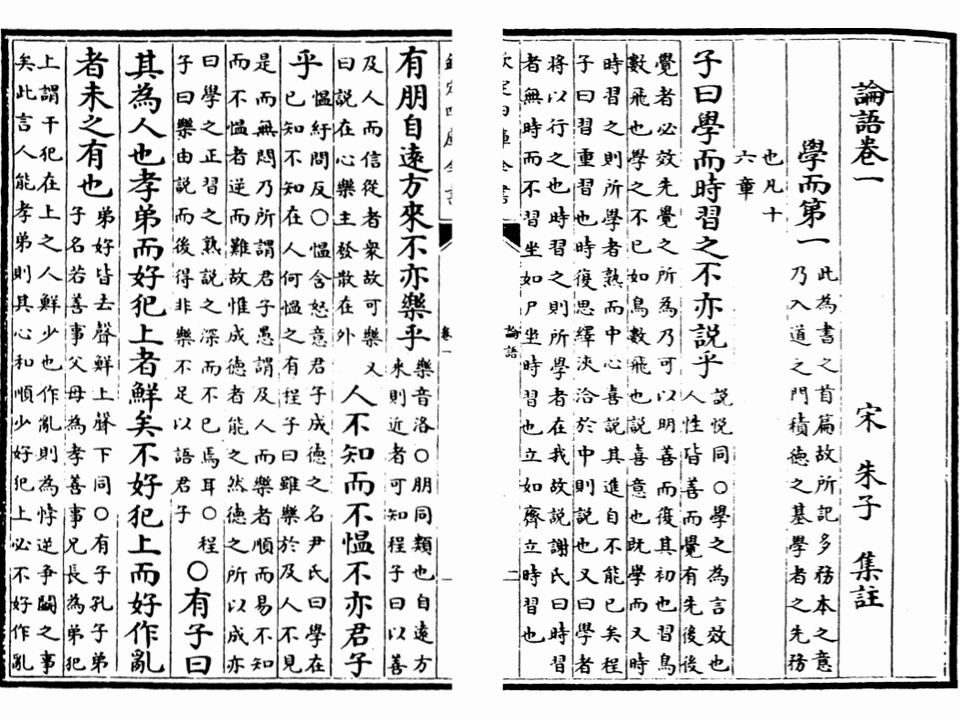 論語卷一 宋 朱子 集註
學而第一
此為書之首篇故所記多務本之意
乃入道之門積德之基學者之先務
也凡十
六章
子曰學而時習之不亦説乎
説悅同○學之為言效也
人性皆善而覺有先後後
覺者必效先覺之所為乃可以明善而復其初也習鳥
數飛也學之不已如鳥數飛也説喜意也既學而又時
時習之則所學者熟而中心喜説其進自不能已矣程
子曰習重習也時復思繹浹洽於中則説也又曰學者
將以行之也時習之則所學者在我故説謝氏曰時習
者無時而不習坐如尸坐時習也立如齊立時習也
欽定四庫全書 論語 二
欽定四庫全書 卷一
有朋自遠方來不亦樂乎
樂音洛○朋同類也自遠方
來則近者可知程子曰以善
及人而信從者衆故可樂又
曰説在心樂主發散在外
人不知而不慍不亦君子
乎
慍紆問反○慍含怒意君子成德之名尹氏曰學在
己知不知在人何慍之有程子曰雖樂於及人不見
是而無悶乃所謂君子愚謂及人而樂者順而易不知
而不慍者逆而難故惟成德者能之然德之所以成亦
曰學之正習之熟説之深而不已焉耳○程
子曰樂由説而後得非樂不足以語君子
○有子曰
其為人也孝弟而好犯上者鮮矣不好犯上而好作亂
者未之有也
弟好皆去聲鮮上聲下同○有子孔子弟
子名若善事父母為孝善事兄長為弟犯
上謂干犯在上之人鮮少也作亂則為悖逆爭鬭之事
矣此言人能孝弟則其心和順少好犯上必不好作亂